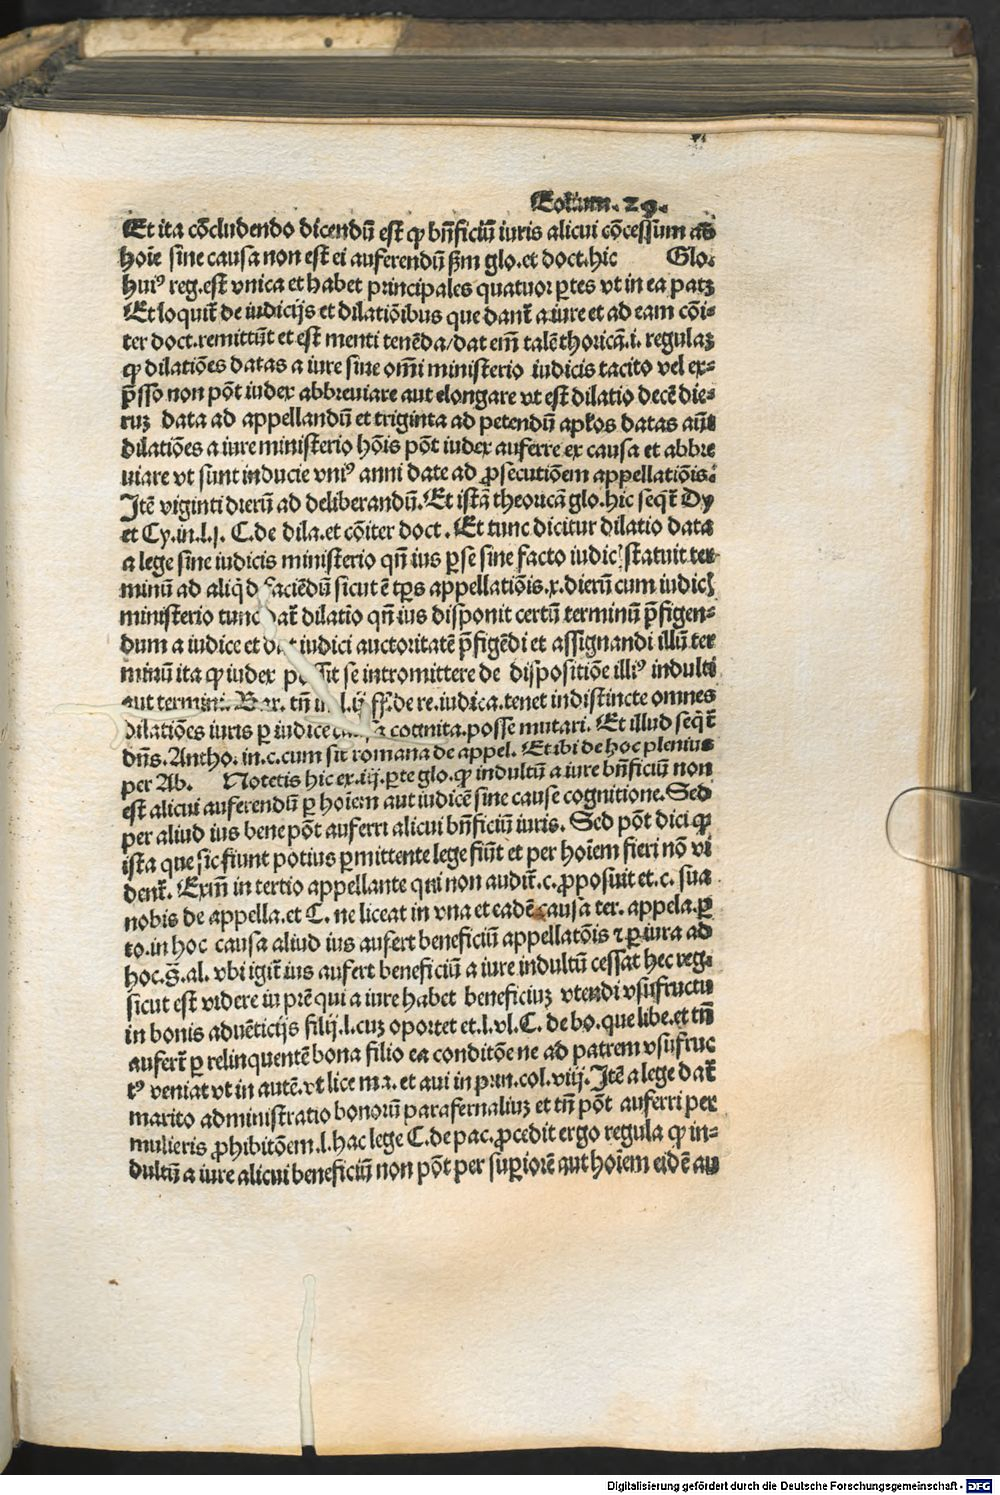 Colum. 29.
Et ita cōcludendo dicendū est ꝙ bn̄ficiū iuris alicui cōcessum ab
hoīe sine causa non est ei auferendū ẜm glo.et doct.hic Glo.
huiꝰ reg.est vnica et habet principales quatuor ꝑtes vt in ea patꝫ
Et loquit̄ de iudicijs et dilatiōibus que dant̄ a iure et ad eam cōi-
ter doct.remittūt et est menti tenēda/dat em̄ talē thoricā.i. regulaꝫ
ꝙ dilatiōes datas a iure sine om̄i ministerio iudicis tacito vel ex-
p̄sso non pōt iudex abbreuiare aut elongare vt est dilatio decē die-
ruꝫ data ad appellandū et triginta ad petendū apl̄os datas aūt
dilatiōes a iure ministerio hōis pōt iudex auferre ex causa et abbre
uiare vt sunt inducie vniꝰ anni date ad ꝓsecutiōem appellatiōis.
Itē viginti dierū ad deliberandū.Et istā theoricā glo.hic seqt̄ Dy
et Cy.in.l.j. C.de dila.et cōiter doct. Et tunc dicitur dilatio data
a lege sine iudicis ministerio qn̄ ius ꝑ se sine facto iudic̄ statuit ter
minū ad aliqd faciēdū sicut ē tp̄s appellatiōis.x.dierū cum iudic̄
ministerio tunc dat̄ dilatio qn̄ ius disponit certū terminū p̄figen-
dum a iudice et dat iudici auctoritatē p̄figēdi et assignandi illū ter
minū ita ꝙ iudex possit se intromittere de dispositiōe illiꝰ indulti
aut termini. Bar. tn̄ in l.ij ff.de re.iudica.tenet indistincte omnes
dilatiōes iuris ꝑ iudicē causa cognita.posse mutari. Et illud seqt̄
dn̄s.Antho.in.c.cum sit romana de appel. Et ibi de hoc plenius
per Ab. Notetis hic ex.iij.ꝑte glo.ꝙ indultū a iure bn̄ficiū non
est alicui auferendū ꝑ hoīem aut iudicē sine cause cognitione.Sed
per aliud ius bene pōt auferri alicui bn̄ficiū iuris. Sed pōt dici ꝙ
ista que sic fiunt potius ꝑmittente lege fiūt et per hoīem fieri nō vi
dent̄. Exm̄ in tertio appellante qui non audit̄.c.ꝓposuit et.c. sua
nobis de appella.et C. ne liceat in vna et eadē causa ter. appela.ꝑ
to.in hoc causa aliud ius aufert beneficiū appellatōis ⁊ ꝑ iura ad
hoc.§.al. vbi igit̄ ius aufert beneficiū a iure indultū cessat hec reg.
sicut est videre in prē qui a iure habet beneficiuꝫ vtendi vsufructu
in bonis aduēticijs filij.l.cuꝫ oportet et.l.vl.C. de bo.que libe.et tn̄
aufert̄ ꝑ relinquentē bona filio ea conditōe ne ad patrem vsufruc
tꝰ veniat vt in autē.vt lice ma. et aui in prin.col.viij.Itē a lege dat̄
marito administratio bonorū parafernaliuꝫ et tn̄ pōt auferri per
mulieris ꝓhibitōem.l.hac lege C.de pac.ꝓcedit ergo regula ꝙ in-
dultū a iure alicui beneficiū non pōt per superiorē aut hoīem eidē au
Digitalisierung gefördert durch die Deutsche Forschungsgemeinschaft - DFG